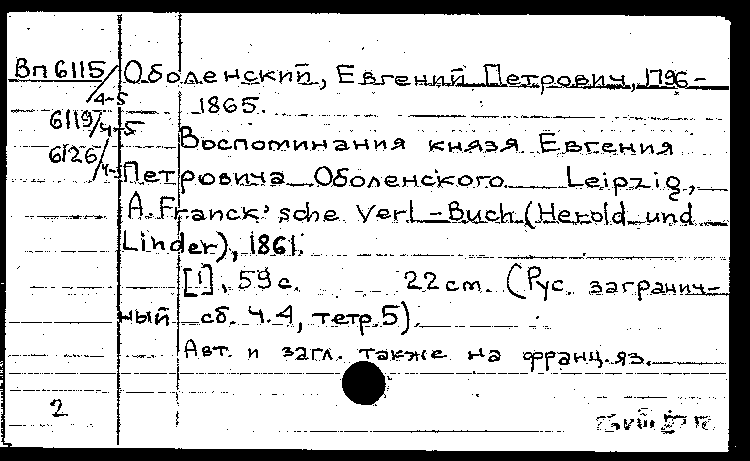 Вп 6115/4-5 Оболенский, Евгений Петрович, 1796-
1865.
6119/4-5 Воспоминания князя Евгения
6126/4- Петровича Оболенского. Leipzig,
A. Franck'sche Verl-Buch (Herold und
Linder), 1861.
[1], 59 с. 22 см. (Рус. заграничн-
ный сб. Ч.4, тетр.5).
Авт. и загл. также на франц. яз.
2